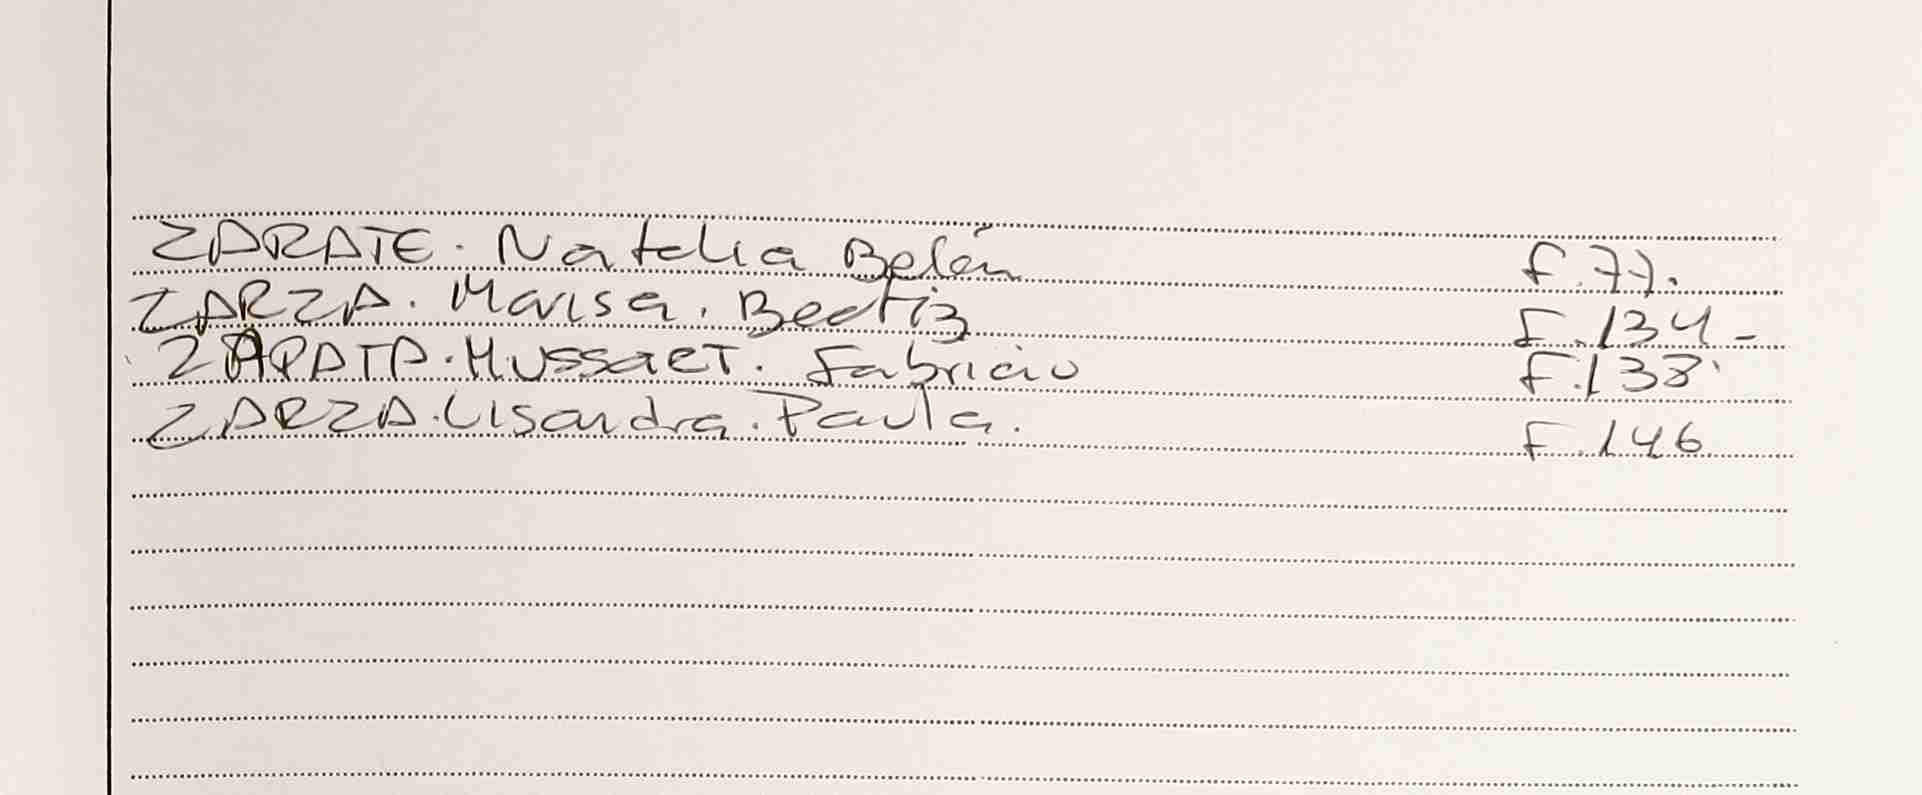 ZARATE. Natalia Belén F.77.
ZARZA. Marisa. Beatriz F.134-
ZAPATA. Mussaet. Fabricio F.138
ZARZA. Lisandra. Paula. F.146